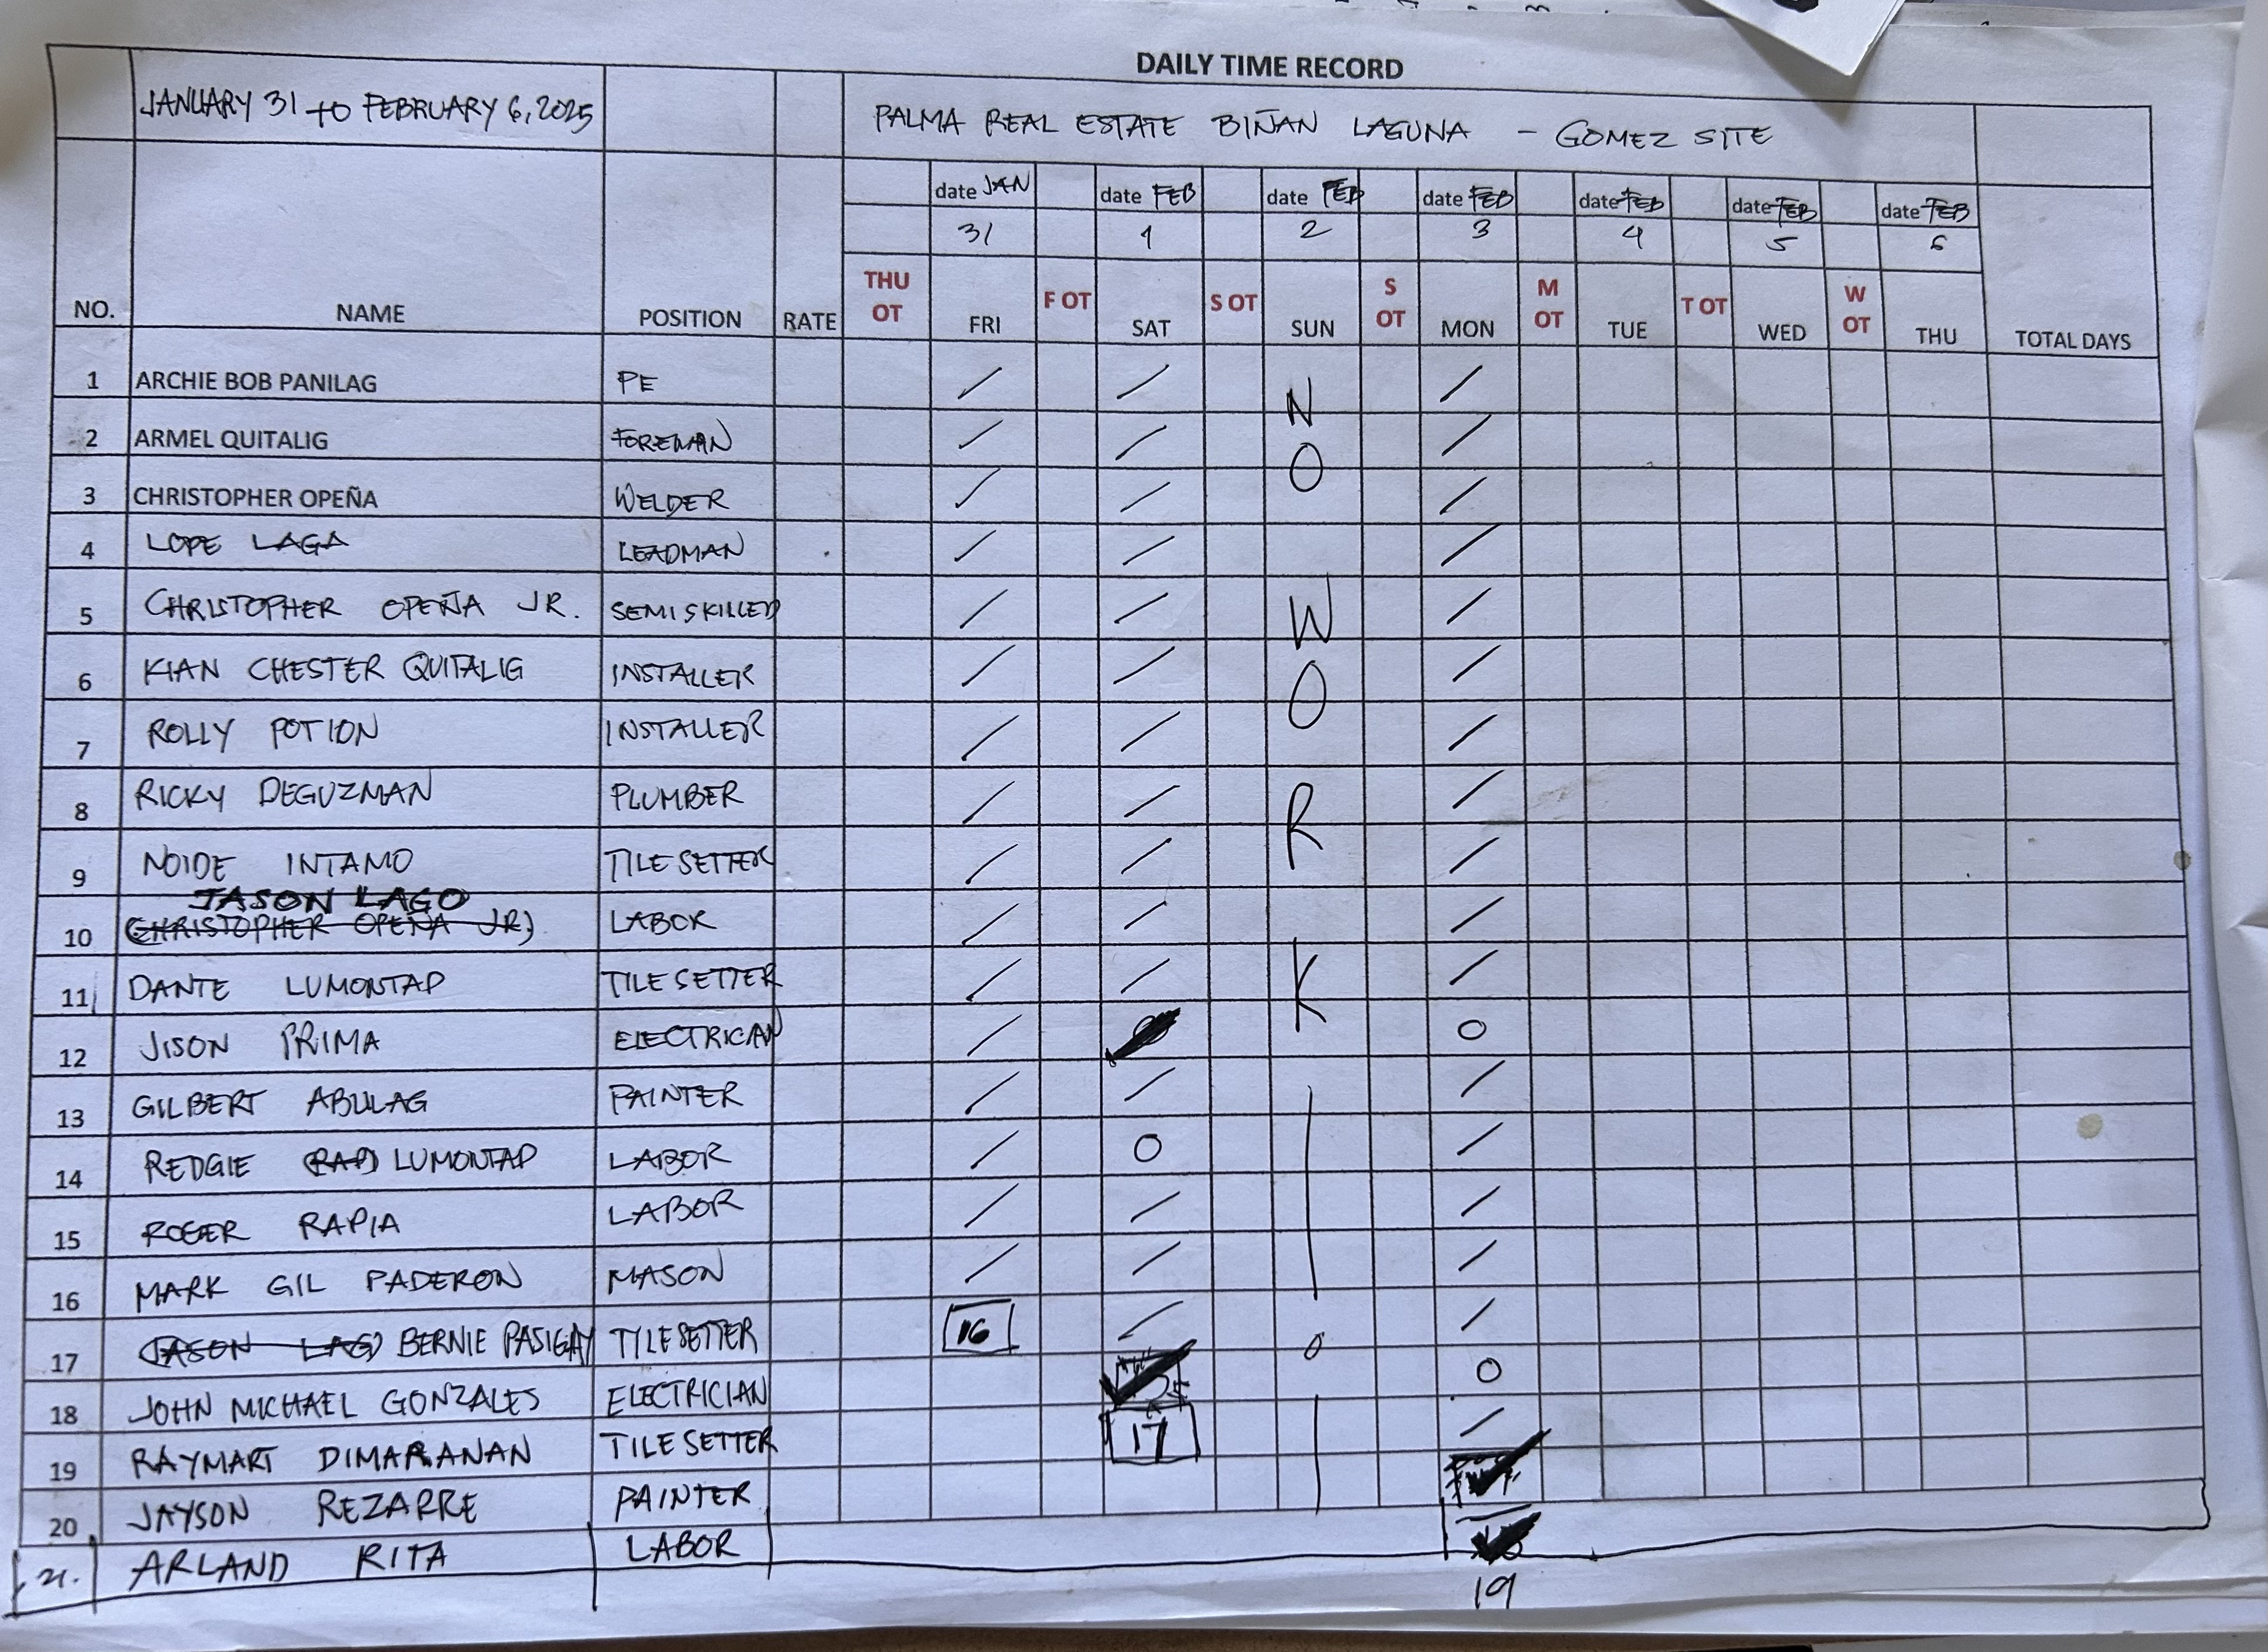 DAILY TIME RECORD
JANUARY 31 to FEBRUARY 6, 2025 PALMA REAL ESTATE BIÑAN LAGUNA - GOMEZ SITE
date JAN date FEB date FEB date FEB date FEB date FEB date FEB
31 1 2 3 4 5 6
NO. NAME POSITION RATE THU OT FRI F OT SAT S OT SUN S OT MON M OT TUE T OT WED W OT THU TOTAL DAYS
1 ARCHIE BOB PANILAG PE / / N /
2 ARMEL QUITALIG FOREMAN / / O /
3 CHRISTOPHER OPEÑA WELDER / / /
4 LOPE LAGA LEADMAN / / /
5 CHRISTOPHER OPEÑA JR. SEMISKILLED / / W /
6 KIAN CHESTER QUITALIG INSTALLER / / O /
7 ROLLY POTION INSTALLER / / /
8 RICKY DEGUZMAN PLUMBER / / R /
9 NOIDE INTAMO TILE SETTER / / /
JASON LAGO
10 (CHRISTOPHER OPEÑA JR) LABOR / / /
11 DANTE LUMONTAD TILE SETTER / / K /
12 JISON PRIMA ELECTRICAN / O
13 GILBERT ABULAG PAINTER / / /
14 REDGIE LUMONTAD LABOR / O /
15 ROGER RAPIA LABOR / / /
16 MARK GIL PADERON MASON / / /
17 JASON LAGO BERNIE PASIGAY TILE SETTER 16 / 0 /
18 JOHN MICHAEL GONZALES ELECTRICIAN O
19 RAYMART DIMARANAN TILE SETTER 17 /
20 JAYSON REZARRE PAINTER
21. ARLAND RITA LABOR
19